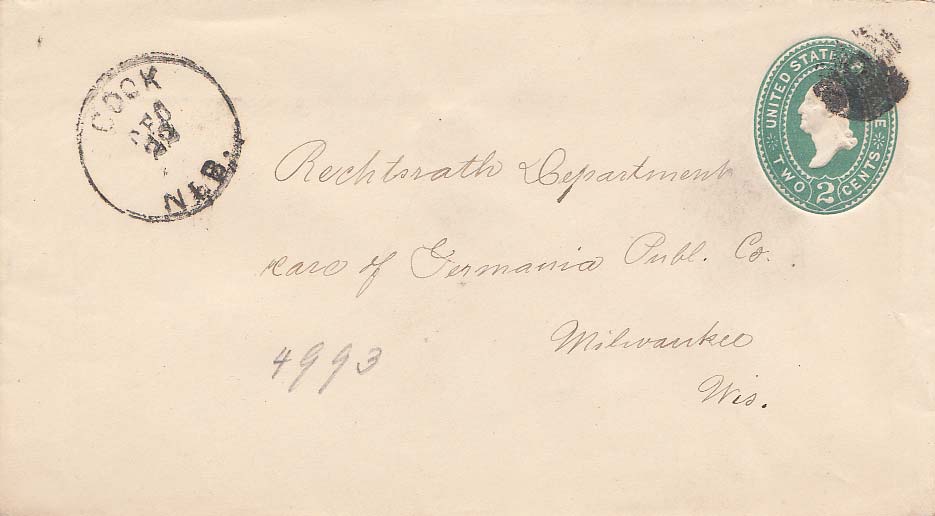 COOK
NEB.
UNITED STATES POSTAGE
TWO 2 CENTS
Rechtsrath Department
care of Germania Publ. Co.
Milwaukee
Wis.
4993